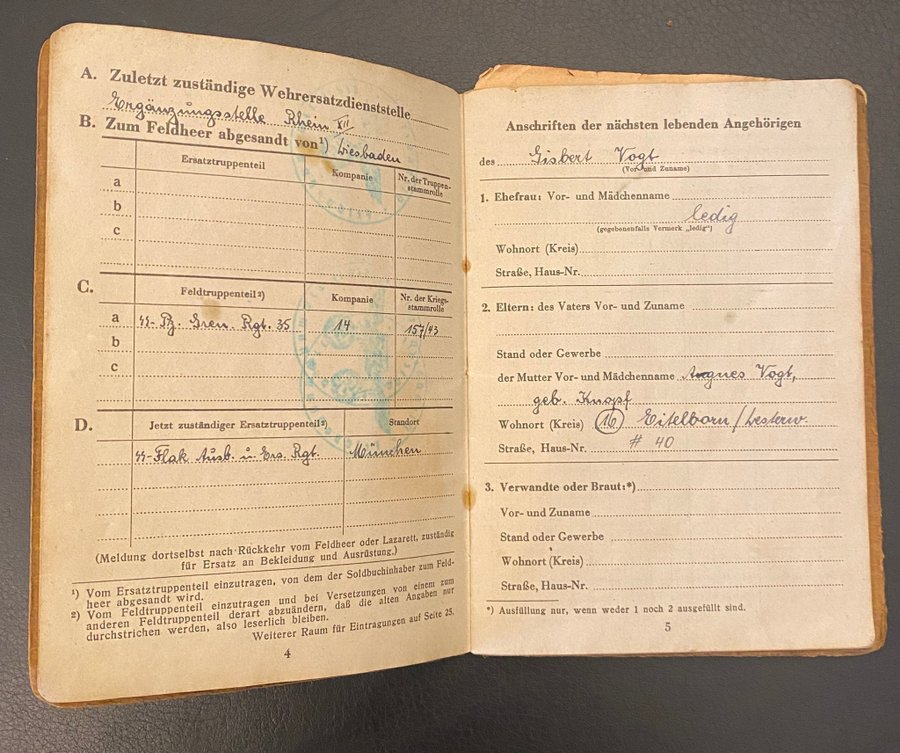 A. Zuletzt zuständige Wehrersatzdienststelle
Ergänzungsstelle Rhein XII
B. Zum Feldheer abgesandt von¹) Wiesbaden
Ersatztruppenteil Kompanie Nr. der Truppen-
stammrolle
a
b
c
C. Feldtruppenteil²) Kompanie Nr. der Kriegs-
stammrolle
a ᛋᛋ-Pz. Gren. Rgt. 35 14 157/43
b
c
D. Jetzt zuständiger Ersatztruppenteil²) Standort
ᛋᛋ-Flak Ausb. u. Ers. Rgt. München
(Meldung dortselbst nach Rückkehr vom Feldheer oder Lazarett, zuständig
für Ersatz an Bekleidung und Ausrüstung.)
¹) Vom Ersatztruppenteil einzutragen, von dem der Soldbuchinhaber zum Feld-
heer abgesandt wird.
²) Vom Feldtruppenteil einzutragen und bei Versetzungen von einem zum
anderen Feldtruppenteil derart abzuändern, daß die alten Angaben nur
durchstrichen werden, also leserlich bleiben.
Weiterer Raum für Eintragungen auf Seite 25.
4
Anschriften der nächsten lebenden Angehörigen
des Gisbert Vogt
(Vor- und Zuname)
1. Ehefrau: Vor- und Mädchenname
ledig
(gegebenenfalls Vermerk „ledig“)
Wohnort (Kreis)
Straße, Haus-Nr.
2. Eltern: des Vaters Vor- und Zuname
Stand oder Gewerbe
der Mutter Vor- und Mädchenname Agnes Vogt,
geb. Knopf
Wohnort (Kreis) (16) Eitelborn/Westerw.
Straße, Haus-Nr. # 40
3. Verwandte oder Braut:*)
Vor- und Zuname
Stand oder Gewerbe
Wohnort (Kreis)
Straße, Haus-Nr.
*) Ausfüllung nur, wenn weder 1 noch 2 ausgefüllt sind.
5